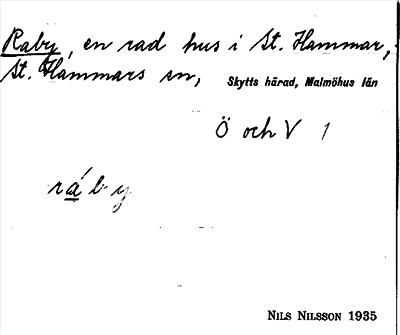 Raby, en rad hus i St. Hammar,
St. Hammars sn, Skytts härad, Malmöhus län
Ö och V 1
ráby
NILS NILSSON 1935